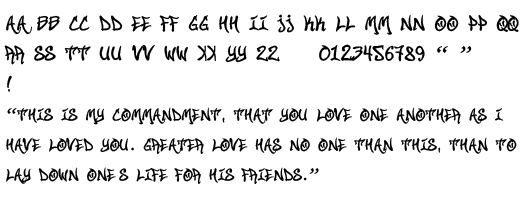 AA BB CC DD EE FF GG HH II jj KK LL MM NN OO PP QQ
RR SS TT UU VV WW XX YY ZZ 0123456789 “ ”
!
“THIS IS MY COMMANDMENT, THAT YOU LOVE ONE ANOTHER AS I
HAVE LOVED YOU. GREATER LOVE HAS NO ONE THAN THIS, THAN TO
LAY DOWN ONE S LIFE FOR HIS FRIENDS.”